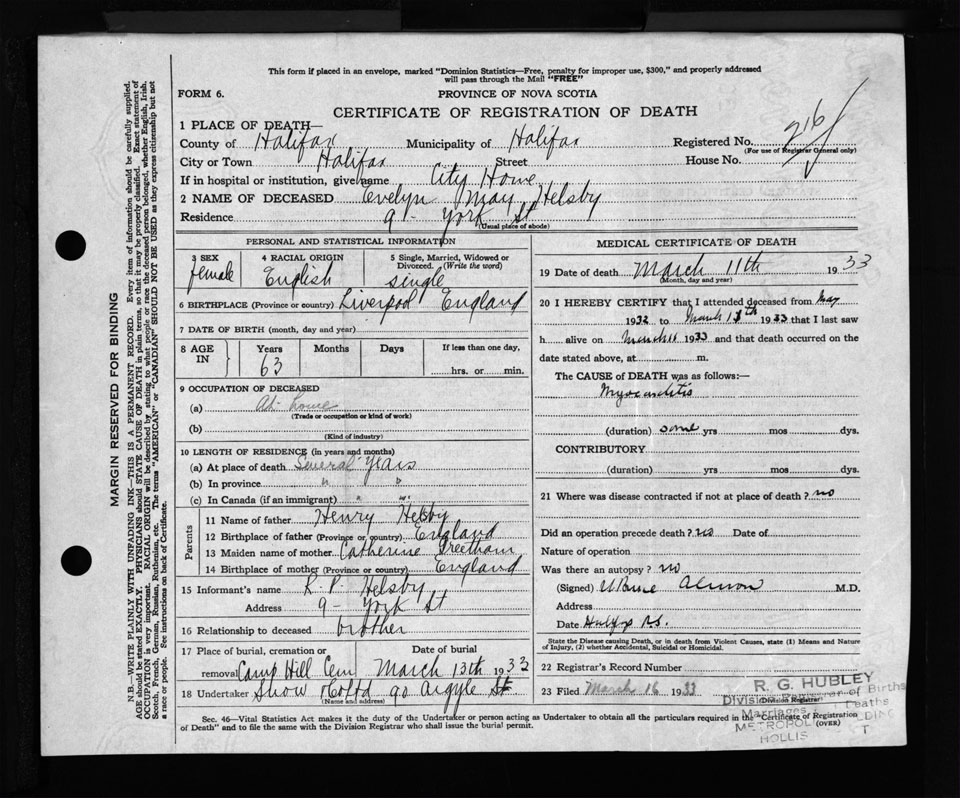 This form if placed in an envelope, marked "Dominion Statistics—Free, penalty for improper use, $300," and properly addressed
will pass through the Mail "FREE"
FORM 6.
PROVINCE OF NOVA SCOTIA
CERTIFICATE OF REGISTRATION OF DEATH
1 PLACE OF DEATH—
County of Halifax Municipality of Halifax Registered No. 216
(For use of Registrar General only)
City or Town Halifax Street House No.
If in hospital or institution, give name City Home
2 NAME OF DECEASED Evelyn May Helsby
Residence 9 - York St
(Usual place of abode)
PERSONAL AND STATISTICAL INFORMATION
3 SEX 4 RACIAL ORIGIN 5 Single, Married, Widowed or
Divorced. (Write the word)
female English single
6 BIRTHPLACE (Province or country) Liverpool England
7 DATE OF BIRTH (month, day and year)
8 AGE IN Years Months Days If less than one day,
63 hrs. or min.
9 OCCUPATION OF DECEASED
(a) At home
(Trade or occupation or kind of work)
(b)
(Kind of industry)
10 LENGTH OF RESIDENCE (in years and months)
(a) At place of death Several Years
(b) In province " "
(c) In Canada (if an immigrant) " "
Parents
11 Name of father Henry Helsby
12 Birthplace of father (Province or country) England
13 Maiden name of mother Catherine Greetham
14 Birthplace of mother (Province or country) England
15 Informant's name R. P. Helsby
Address 9 - York St
16 Relationship to deceased brother
17 Place of burial, cremation or Date of burial
removal Camp Hill Cem March 13th 1933
18 Undertaker Snow & Co Ltd 90 Argyle St
(Name and address)
MEDICAL CERTIFICATE OF DEATH
19 Date of death March 11th 1933
(Month, day and year)
20 I HEREBY CERTIFY that I attended deceased from May
1932 to March 1933 that I last saw
h alive on March 11 1933 and that death occurred on the
date stated above, at m.
The CAUSE OF DEATH was as follows:—
Myocarditis
(duration) some yrs mos dys.
CONTRIBUTORY
(duration) yrs mos dys.
21 Where was disease contracted if not at place of death? no
Did an operation precede death? no Date of
Nature of operation
Was there an autopsy? no
(Signed) Almon M.D.
Address
Date Halifax N.S.
State the Disease causing Death, or in death from Violent Causes, state (1) Means and Nature
of Injury, (2) whether Accidental, Suicidal or Homicidal.
22 Registrar's Record Number
23 Filed March 16 1933
(Division Registrar)
R. G. HUBLEY
Division Registrar of Births
Marriages Deaths
METROPOL DING
HOLLIS T
Sec. 46—Vital Statistics Act makes it the duty of the Undertaker or person acting as Undertaker to obtain all the particulars required in the "Certificate of Registration
of Death" and to file the same with the Division Registrar who shall issue the burial permit.
(OVER)
MARGIN RESERVED FOR BINDING
N.B.—WRITE PLAINLY WITH UNFADING INK—THIS IS A PERMANENT RECORD. Every item of information should be carefully supplied.
AGE should be stated EXACTLY. PHYSICIANS should STATE CAUSE OF DEATH in plain terms, so that it may be properly classified. Exact statement of
OCCUPATION is very important. RACIAL ORIGIN will be described by stating to what people or race the deceased person belonged, whether English, Irish,
Scotch, French, German, Russian, Ruthenian, etc. The terms "AMERICAN" or "CANADIAN" SHOULD NOT BE USED as they express citizenship but not
a race or people. See instructions on back of Certificate.